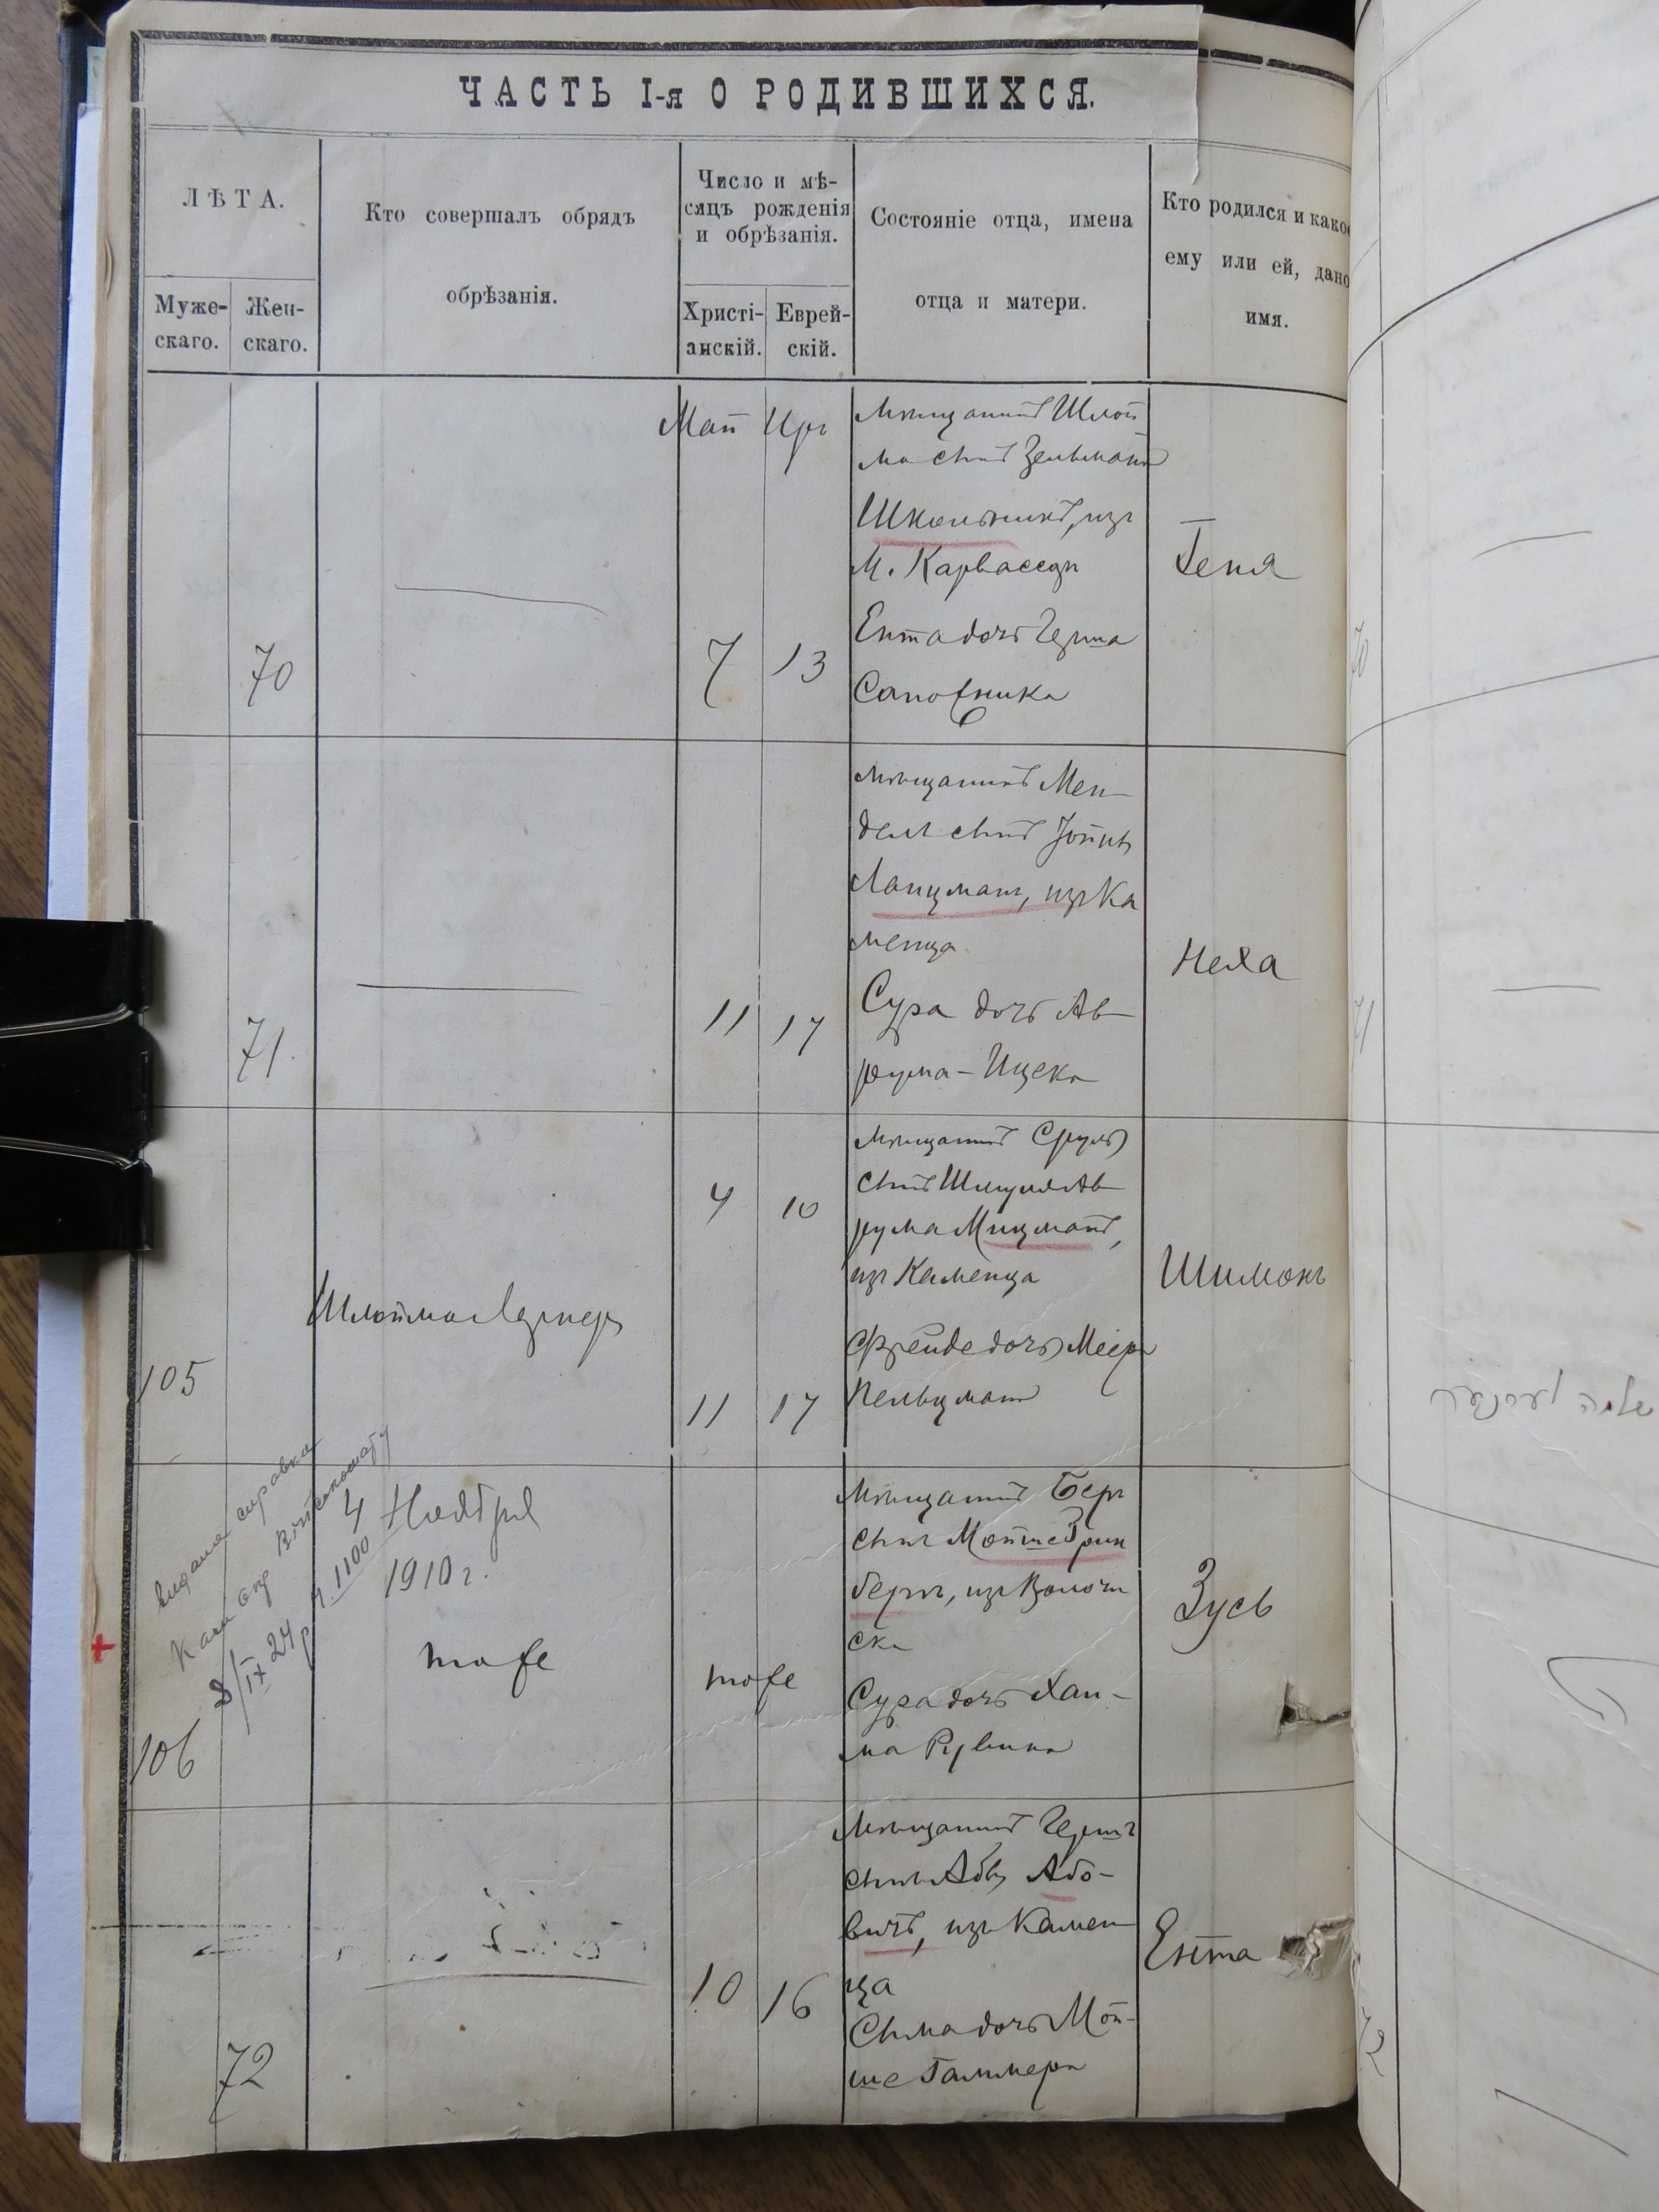 ЧАСТЬ I-я О РОДИВШИХСЯ.
ЛѢТА.
Муже-
скаго.
Жен-
скаго.
Кто совершалъ обрядъ
обрѣзанія.
Число и мѣ-
сяцъ рожденія
и обрѣзанія.
Христі-
анскій.
Еврей-
скій.
Состояніе отца, имена
отца и матери.
Кто родился и како
ему или ей, дано
имя.
Май Иръ
70
7 13
мѣщанинъ Шлой
ма сынъ Зельмана
Школьникъ, изъ
м. Карвасеръ
Ента дочь Герша
Сапожника
Геня
71
11 17
мѣщанинъ Мен
дель сынъ
Ланцманъ, изъ Ка
менца
Сура дочь Ав
рума-Ицека
Неха
105
Шлойма Лернеръ
4 10
11 17
мѣщанинъ Сруль
сынъ Шмуля Ав
рума Мицманъ,
изъ Каменца
Фрейде дочь Меера
Пельцмана
Шимонъ
видана справка
Кам окр Військомату
8/IX 24 р ч. 1100
4 Ноября
1910 г.
106
тоже
тоже
мѣщанинъ Беръ
сынъ Мойше Грин
бергъ, изъ Волочи
ска
Сура дочь Хаи-
ма Рувина
Зусь
72
10 16
мѣщанинъ Гершъ
сынъ Абы Або-
вичъ, изъ Камен
ца
Сыма дочь Мой-
ше Гаммера
Ента
70
71
שלמה לערנער
72